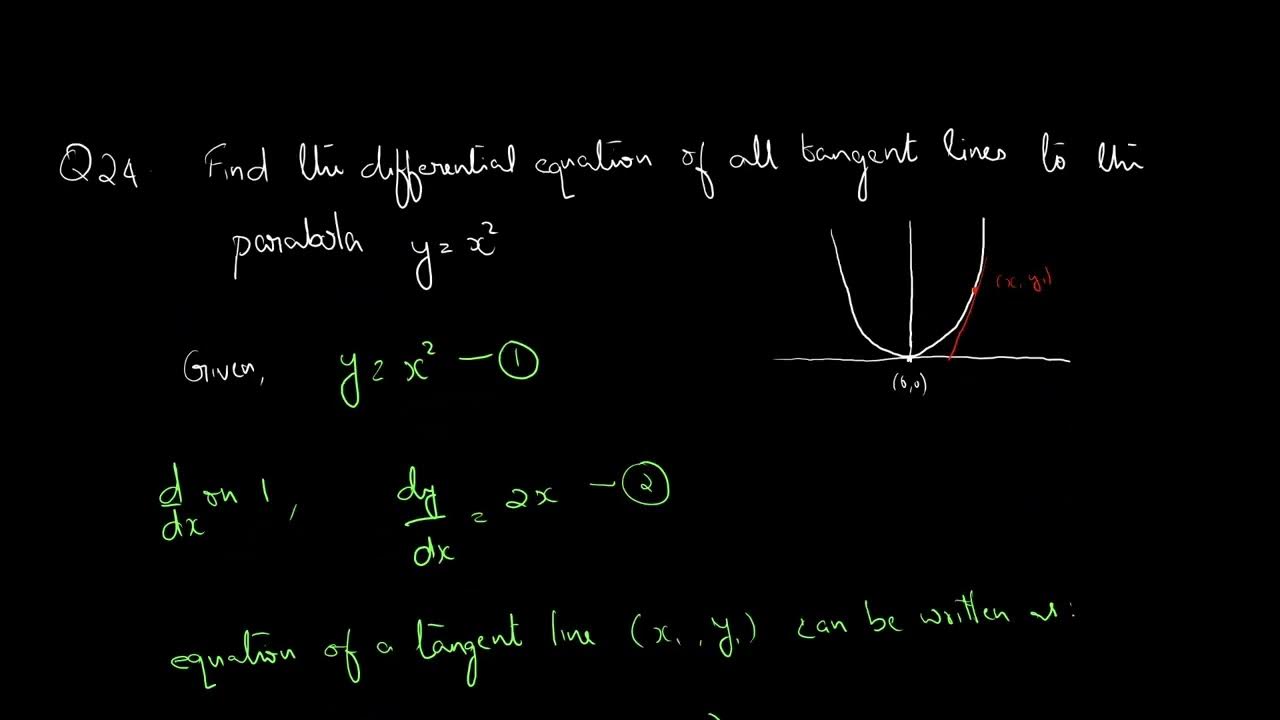 Q24. Find the differential equation of all tangent lines to the
parabola y = x²
(x₁, y₁)
(0,0)
Given, y = x² — ①
d/dx on 1, dy/dx = 2x — ②
equation of a tangent line (x₁, y₁) can be written as: